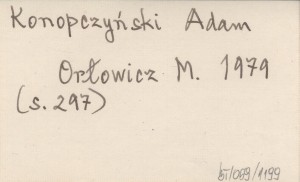 Konopczyński Adam
Orłowicz M. 1979
(s. 297)
BI/069/1199